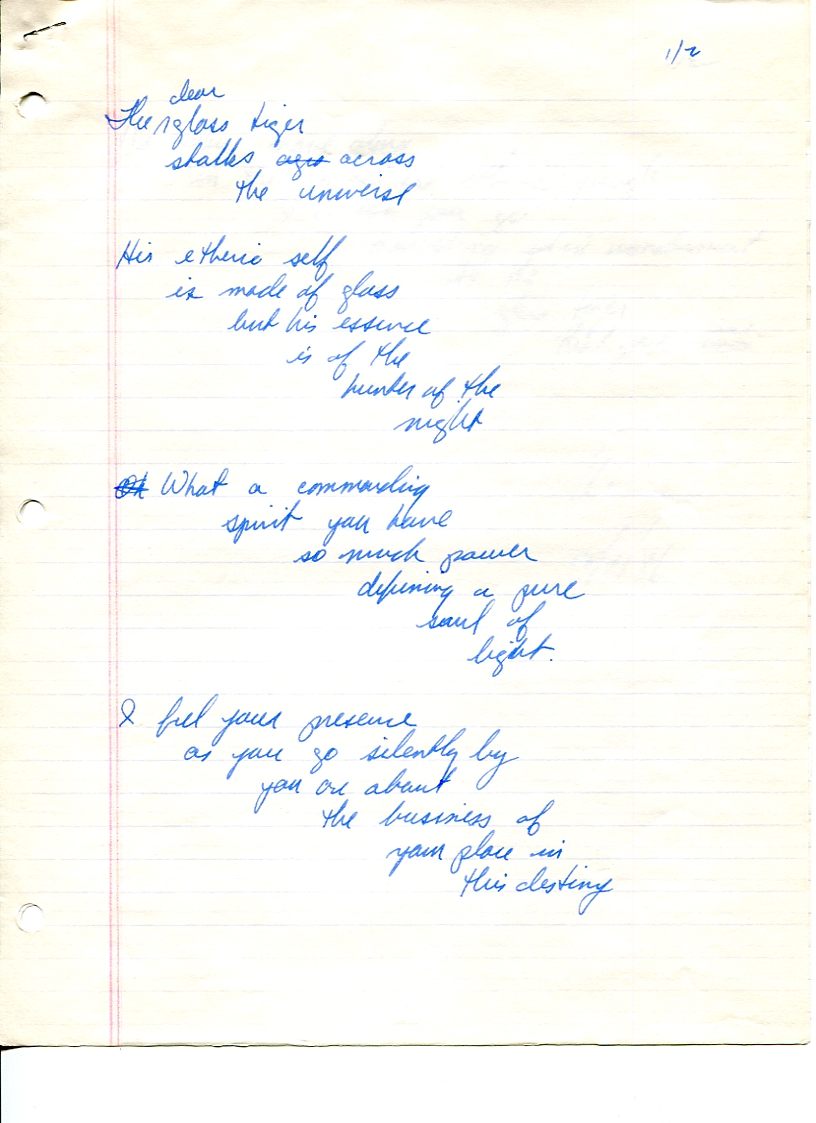 1/2
clear
The glass tiger
stalks across
the universe
His etheric self
is made of glass
but his essence
is of the
hunter of the
night
What a commanding
spirit you have
so much power
defining a pure
soul of
light.
I feel your presence
as you go silently by
you are about
the business of
your place in
this destiny